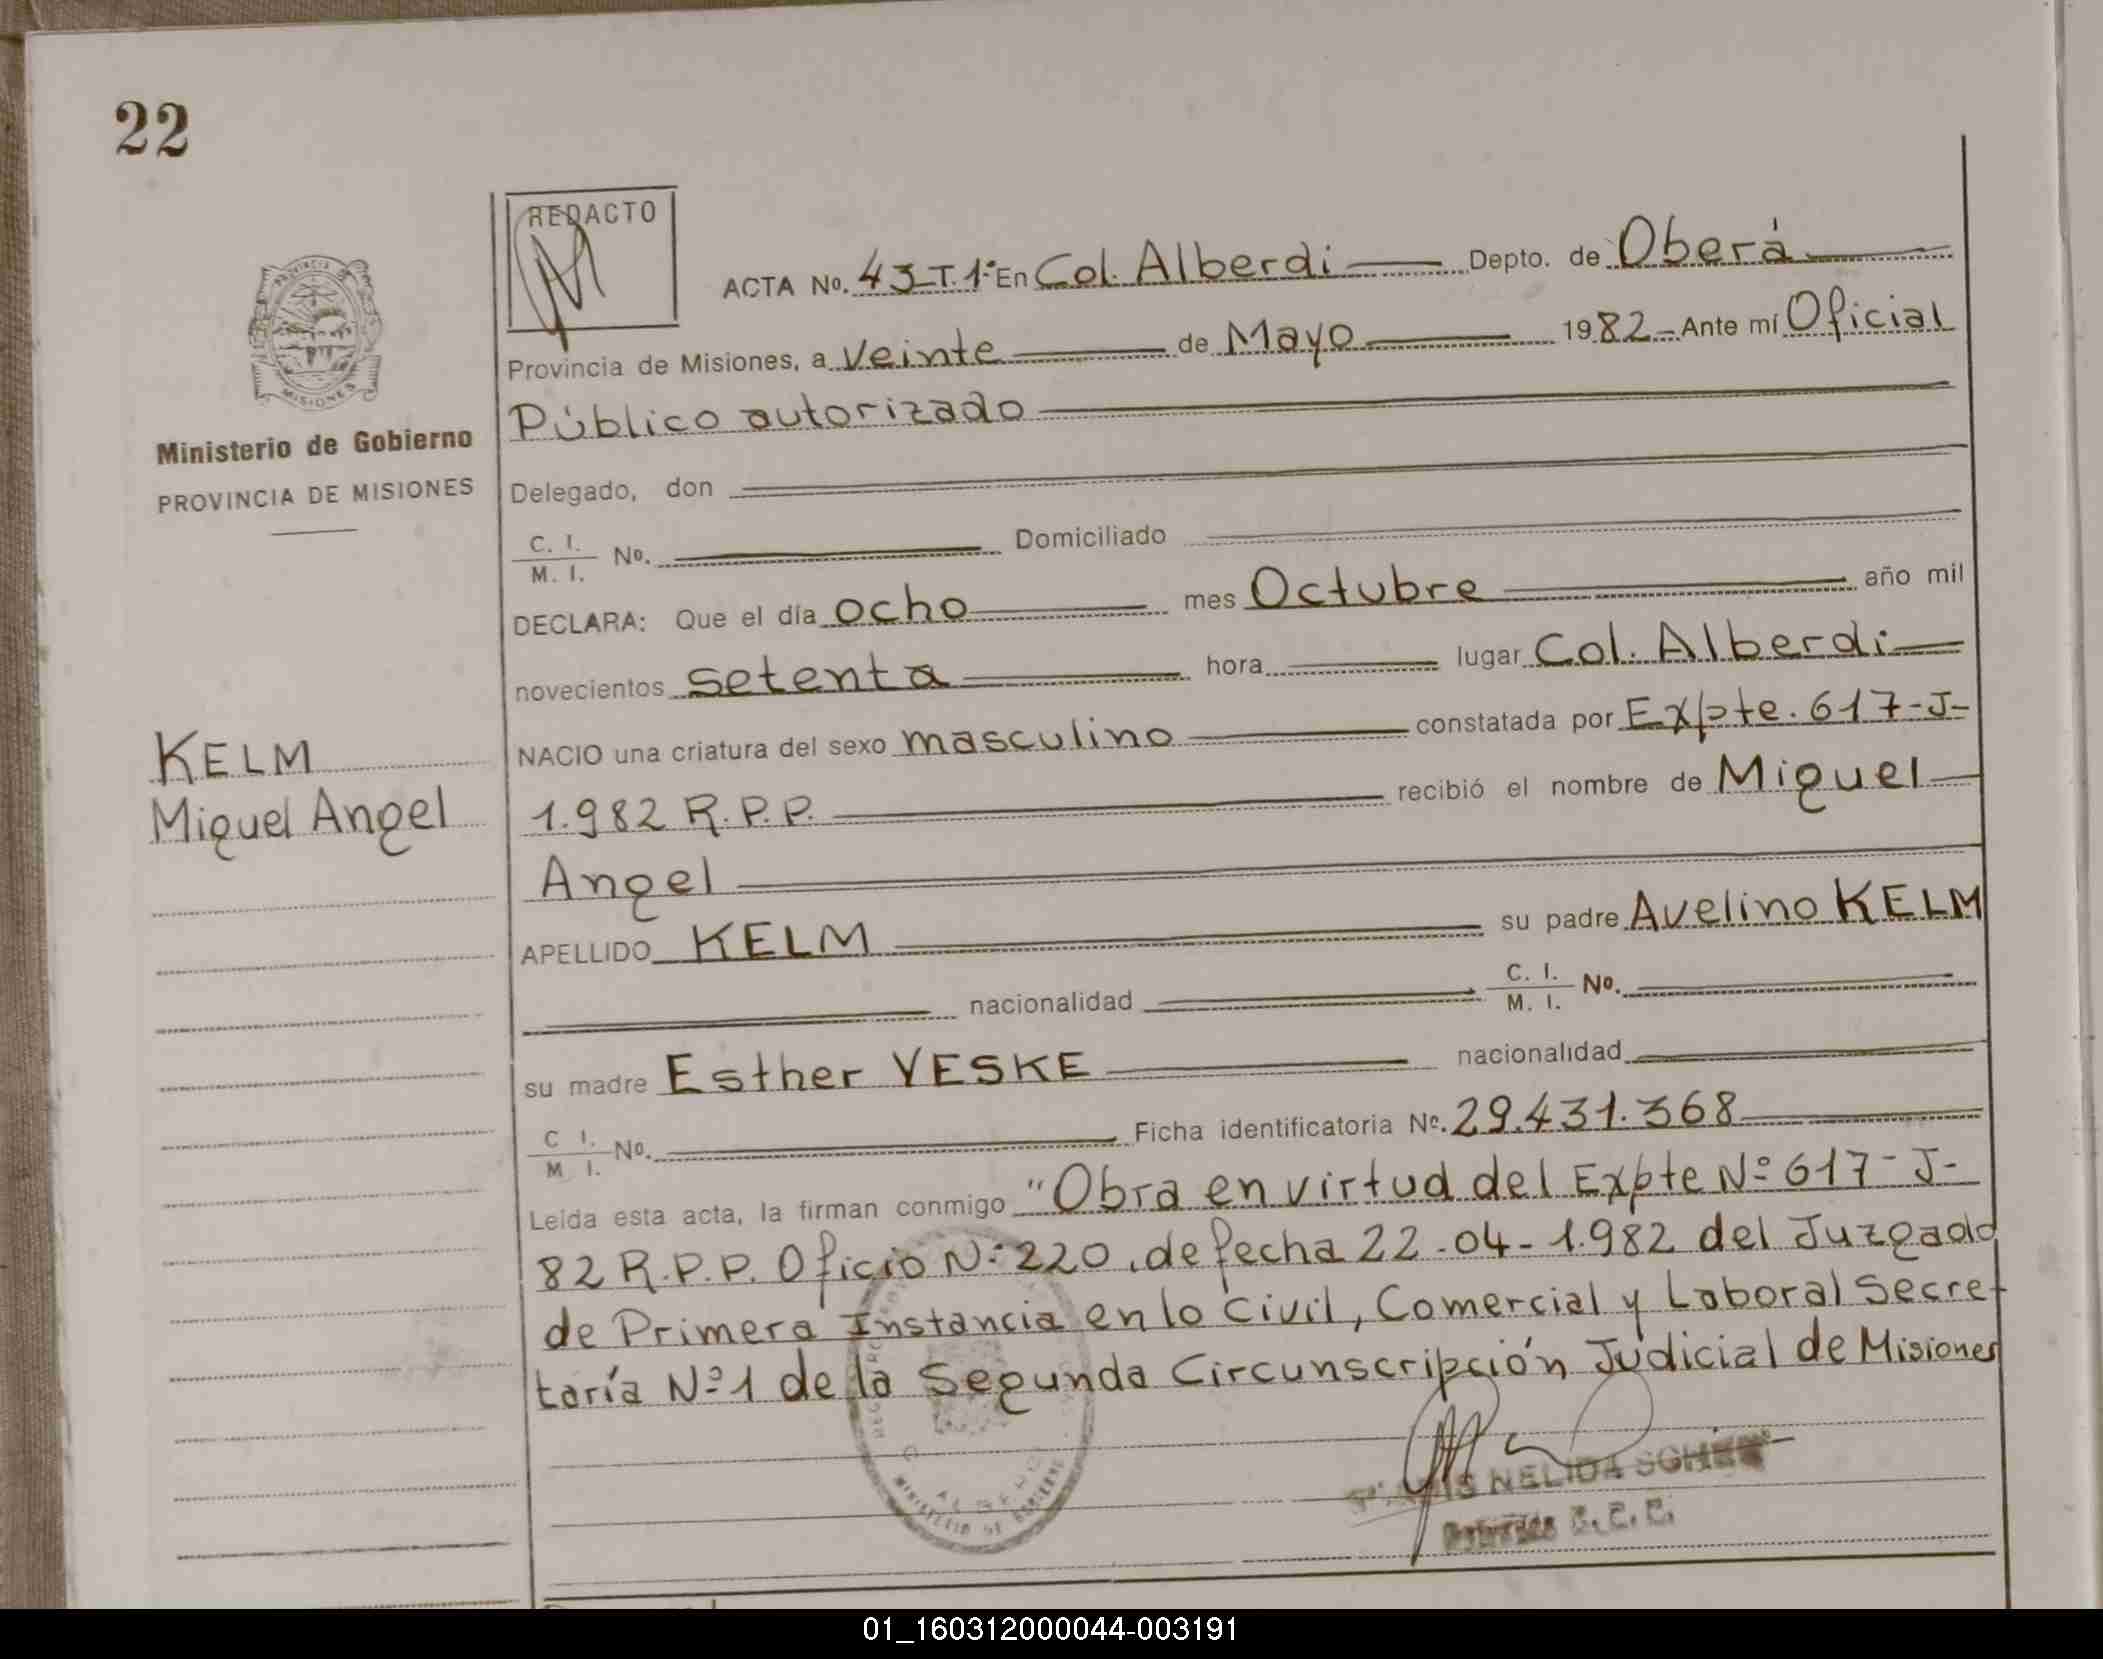 22
REDACTO
ACTA No. 43-T.1º En Col. Alberdi Depto. de Oberá
Provincia de Misiones, a veinte de Mayo 1982 Ante mí Oficial
Público autorizado
Ministerio de Gobierno
PROVINCIA DE MISIONES
Delegado, don
C. I. / M. I. No. Domiciliado
DECLARA: Que el día ocho mes Octubre año mil
novecientos setenta hora lugar Col. Alberdi
NACIO una criatura del sexo masculino constatada por Expte. 617-J-
KELM
Miguel Angel
1.982 R.P.P. recibió el nombre de Miguel
Angel
APELLIDO KELM su padre Avelino KELM
nacionalidad C. I. / M. I. No.
su madre Esther YESKE nacionalidad
C I. / M I. No. Ficha identificatoria Nº. 29.431.368
Leída esta acta, la firman conmigo "Obra en virtud del Expte Nº 617-J-
82 R.P.P. Oficio Nº 220, de fecha 22-04-1.982 del Juzgado
de Primera Instancia en lo Civil, Comercial y Laboral Secre-
taría Nº 1 de la Segunda Circunscripción Judicial de Misiones
MINISTERIO DE GOBIERNO
NELIDA
01_160312000044-003191